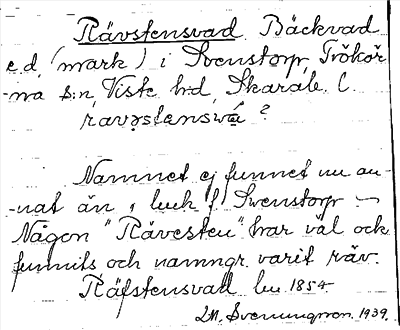 Rävstensvad Bäckvad
e.d. (mark) i Svenstorp, Trökör-
-na s:n, Viste hd, Skarab. l.
ravəstenswá ?
Namnet ej funnet nu an-
-nat än i luk f Svenstorp —
Någon "Rävesten" har väl ock
funnits, och namngr. varit räv.
Räfstensvad lu 1854
I.M. Svenungsson. 1939.